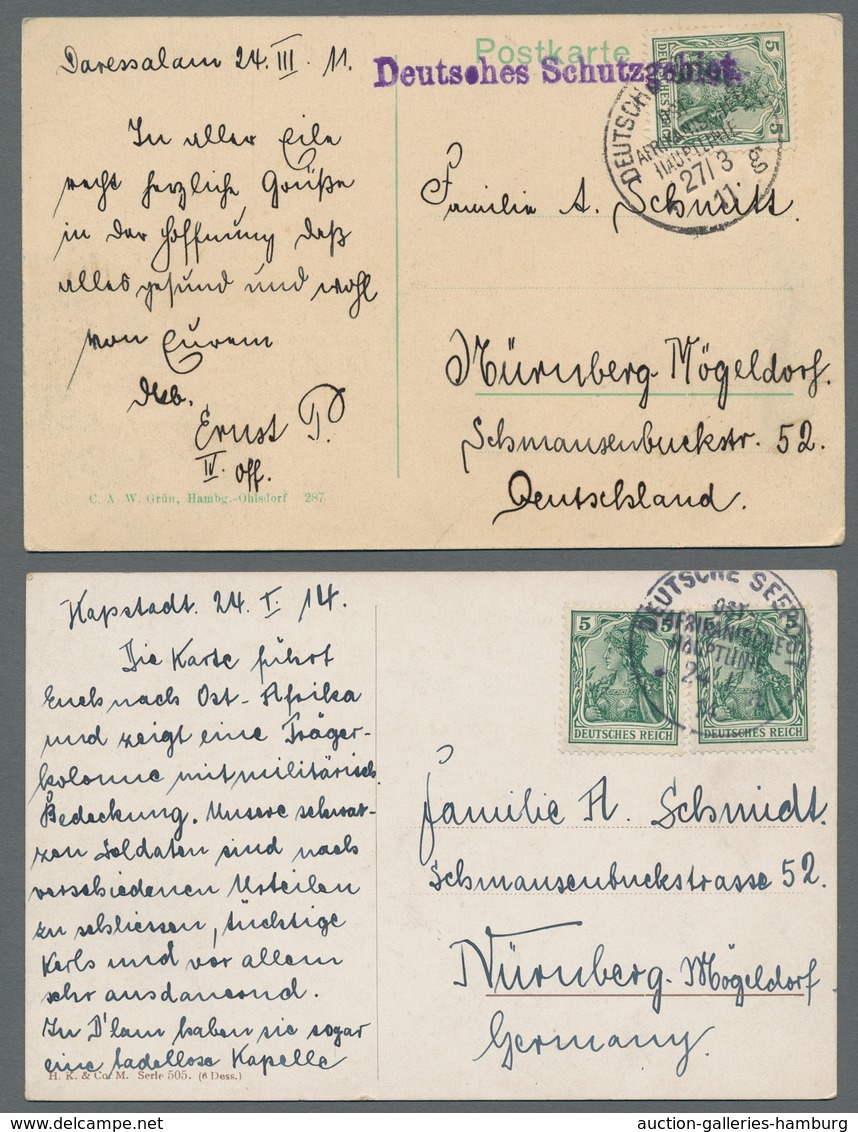 Daressalam 24. III. 11.
Postkarte
Deutsches Schutzgebiet.
5
5
DEUTSCHE
OST-
AFRIKANISCHE
HAUPTLINIE
27/3
11
gg
In aller Eile
recht herzliche Grüße
in der Hoffnung daß
alles gesund und wohl
von Eurem
Ernst P.
IV. Off.
C. A. W. Grün, Hambg.-Ohlsdorf 287
Familie A. Schmitt.
Nürnberg-Mögeldorf.
Schmausenbuckstr. 52.
Deutschland.
Kapstadt. 24. I. 14.
Die Karte führt
Euch nach Ost-Afrika
und zeigt eine Träger-
kolonne mit militärisch.
Bedeckung. Unsere schwar-
zen Soldaten sind nach
verschiedenen Urteilen
zu schliessen, tüchtige
Kerls und vor allem
sehr ausdauernd.
In D'lam haben sie sogar
eine tadellose Kapelle
H. K. & Co. M. Serie 505. (6 Dess.)
5
5
5
DEUTSCHES REICH
DEUTSCHES REICH
DEUTSCHE SEEPOST
OST-
AFRIKANISCHE
HAUPTLINIE
24
Familie A. Schmidt.
Schmausenbuckstrasse 52.
Nürnberg-Mögeldorf
Germany.
auction-galleries-hamburg